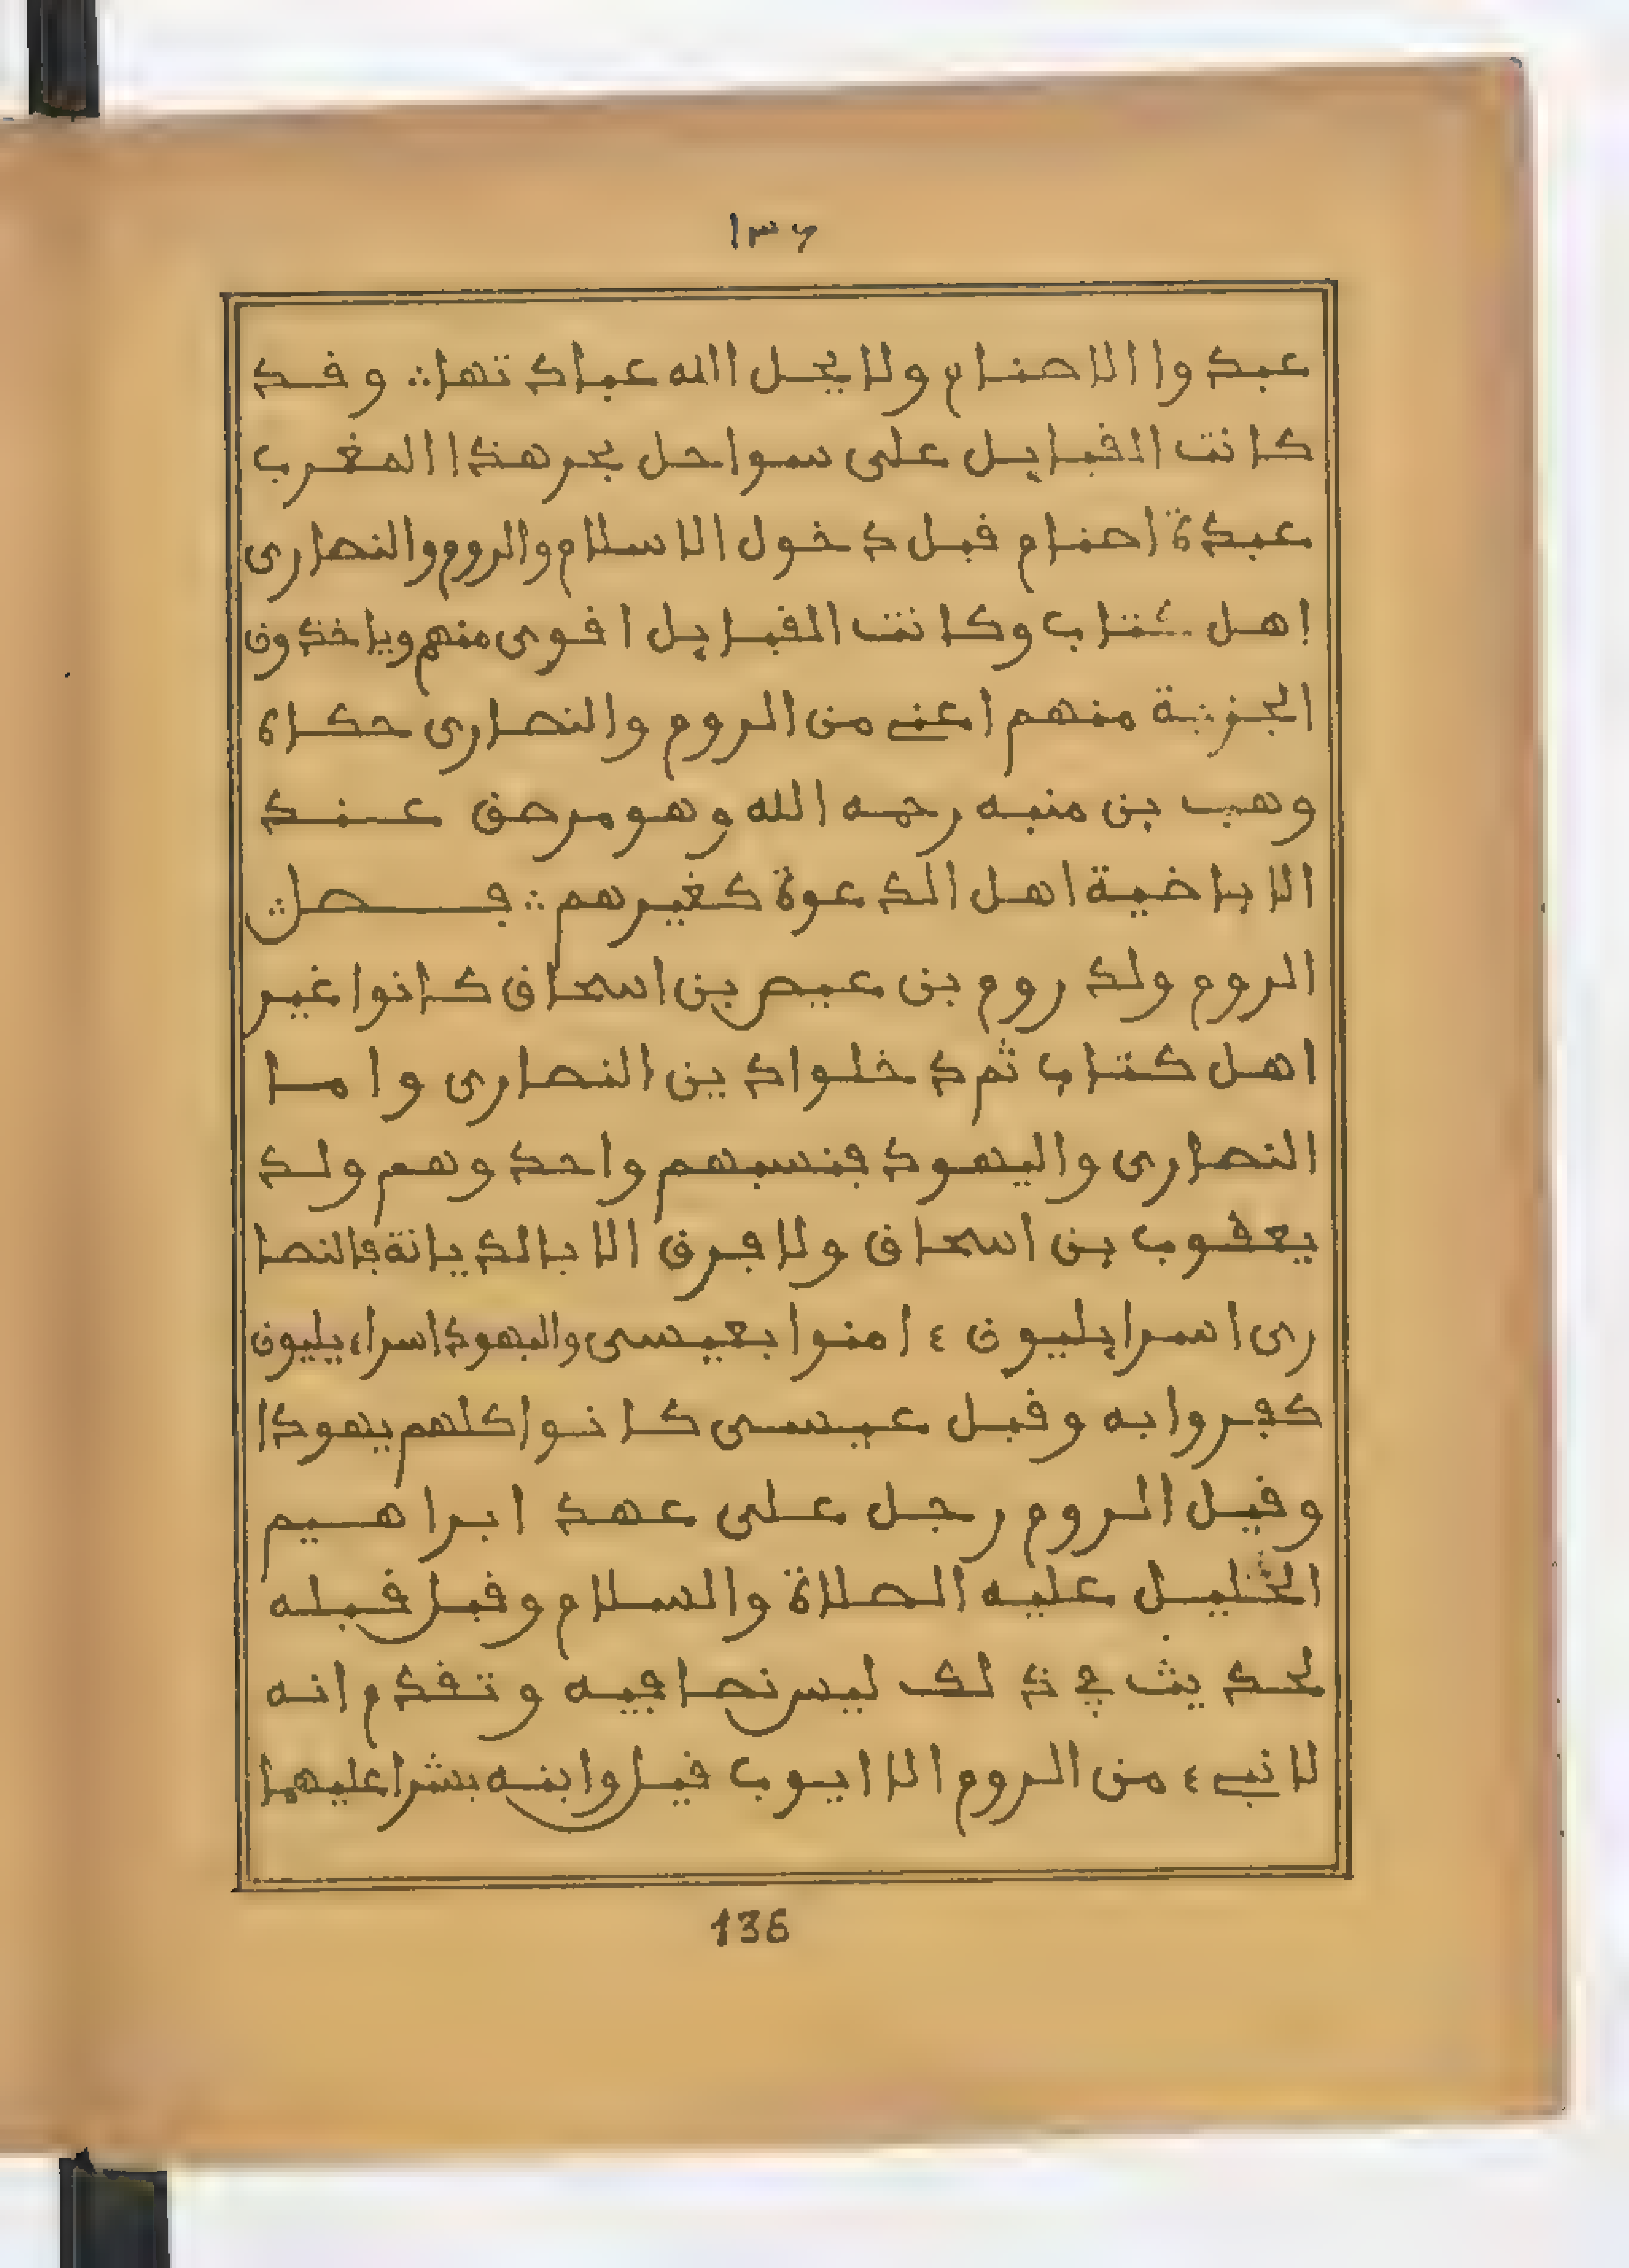 ١٣٦
عبدوا الاصنام ولا يحل الله عبادتها ؞ وقد
كانت القبايل على سواحل بحر هذا المغرب
عبدة اصنام قبل دخول الاسلام والروم والنصارى
اهل كتاب وكانت القبايل اقوى منهم وياخذون
الجزية منهم اعني من الروم والنصارى حكاه
وهب بن منبه رحمه الله وهو مرضي عند
الاباضية اهل الدعوة كغيرهم ؞ فصل ؞
الروم ولد روم بن عيص بن اسحاق كانوا غير
اهل كتاب ثم دخلوا دين النصارى واما
النصارى واليهود فنسبهم واحد وهم ولد
يعقوب بن اسحاق ولا فرق الا بالديانة فالنصا
رى اسرايليون ءامنوا بعيسى واليهود اسراءيليون
كفروا به وقبل عيسى كانوا كلهم يهودا
وقيل الروم رجل على عهد ابراهيم
الخليل عليه الصلاة والسلام وقيل قبله
لحديث في ذلك ليس نصا فيه وتقدم انه
لا نبيء من الروم الا ايوب قيل وابنه بشرا عليهما
136